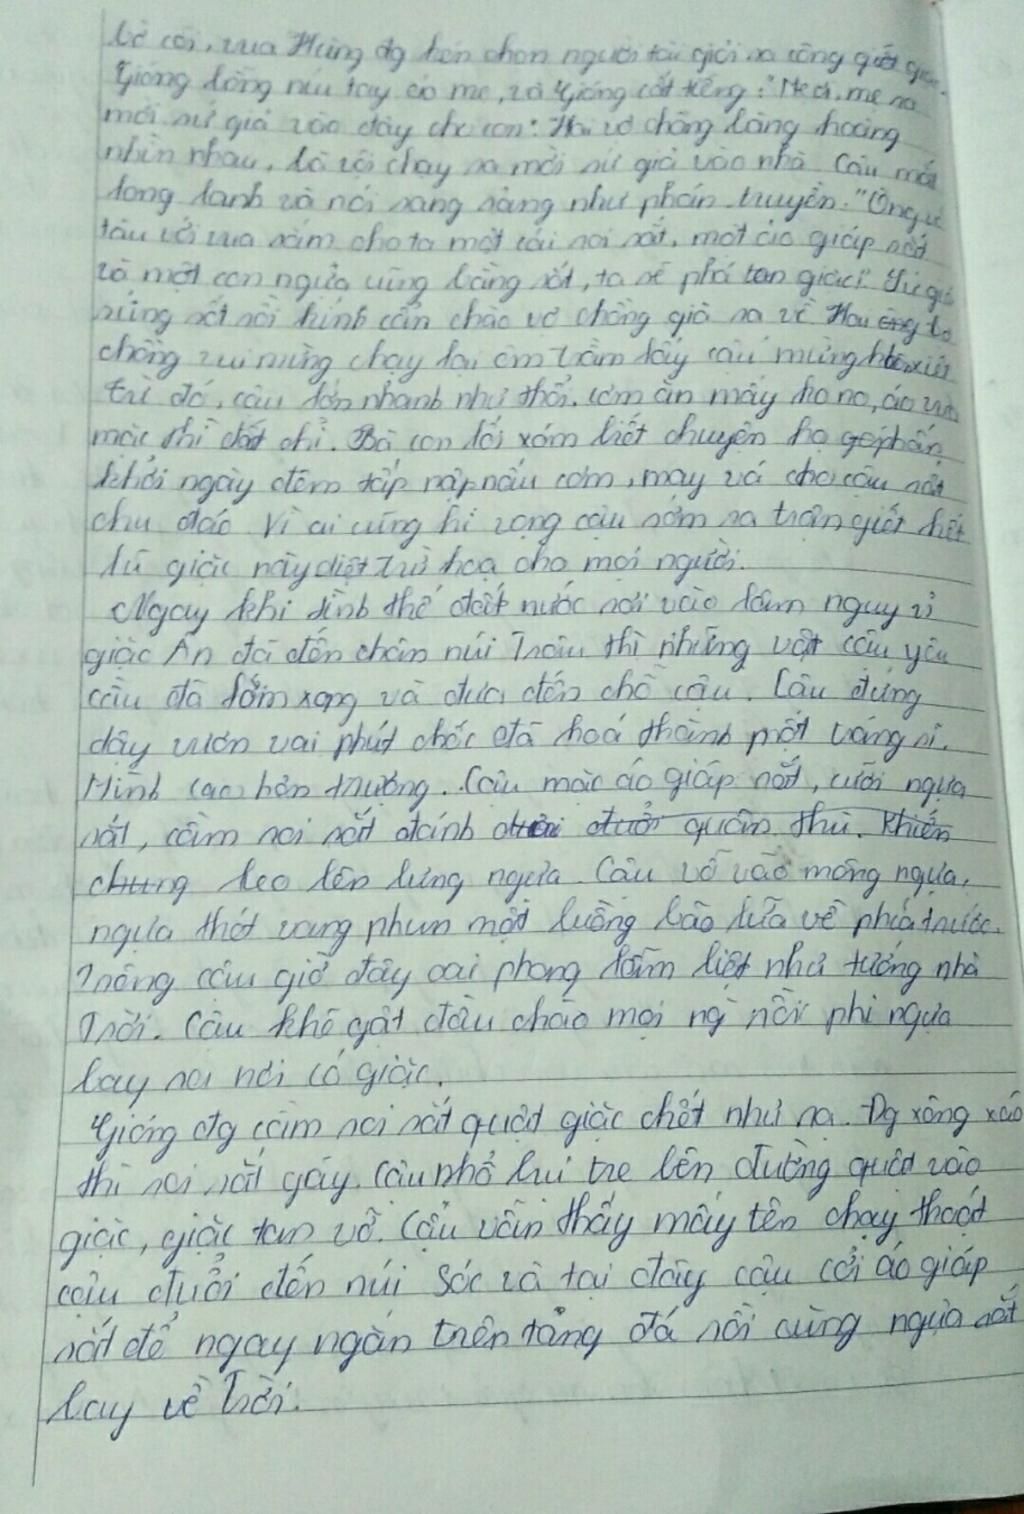 bờ cõi, vua Hùng đg kén chọn người tài giỏi ra công giết giặc.
Gióng bỗng níu tay áo mẹ, và Gióng cất tiếng: "Mẹ ơi, mẹ ra
mời sứ giả vào đây cho con". Hai vợ chồng bàng hoàng
nhìn nhau, bà vội chạy ra mời sứ giả vào nhà. Cậu mắt
long lanh và nói sang sảng như phán truyền: "Ông về
tâu với vua sắm cho ta một cái roi sắt, một áo giáp sắt
và một con ngựa cũng bằng sắt, ta sẽ phá tan giặc!". Sứ giả
sửng sốt rồi kính cẩn chào vợ chồng già ra về. Hai ông bà
chồng vui mừng chạy lại ôm trầm lấy cậu mừng
từ đó, cậu lớn nhanh như thổi. cơm ăn mấy ko no, áo vừa
mặc thì đứt chỉ. Bà con lối xóm biết chuyện họ góp phấn
khởi ngày đêm tấp nập nấu cơm, may vá cho cậu rất
chu đáo vì ai cũng hi vọng cậu sớm ra trận giết hết
lũ giặc này diệt trừ hoạ cho mọi người.
Ngay khi tình thế đất nước rơi vào lâm nguy vì
giặc Ân đã đến chân núi Trâu thì những vật cậu yêu
cầu đã làm xong và đưa đến chỗ cậu. Cậu đứng
dậy vươn vai phút chốc đã hoá thành một tráng sĩ.
Mình cao hơn trượng. Cậu mặc áo giáp sắt, cưỡi ngựa
sắt, cầm roi sắt đánh đuổi quân thù. Khiến
chung leo lên lưng ngựa. Cậu vỗ vào mông ngựa,
ngựa thét vang phun một luồng bão lửa về phía trước.
Trông cậu giờ đây oai phong lẫm liệt như tướng nhà
Trời. Cậu khẽ gật đầu chào mọi ng rồi phi ngựa
bay ra nơi có giặc.
Gióng đg cầm roi sắt quật giặc chết như rạ. Đg xông xáo
thì roi sắt gãy. Cậu nhổ bụi tre bên đường quật vào
giặc, giặc tan vỡ. Cậu vẫn thấy mấy tên chạy thoát
cậu đuổi đến núi Sóc và tại đây cậu cởi áo giáp
sắt để ngay ngắn trên tảng đá rồi cùng ngựa sắt
bay về trời.